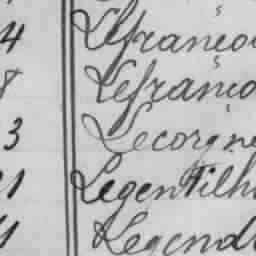 4 Lefrançoi
8 Lefranço
3 Lecorgne
21 LegenTilh
4 Legendr